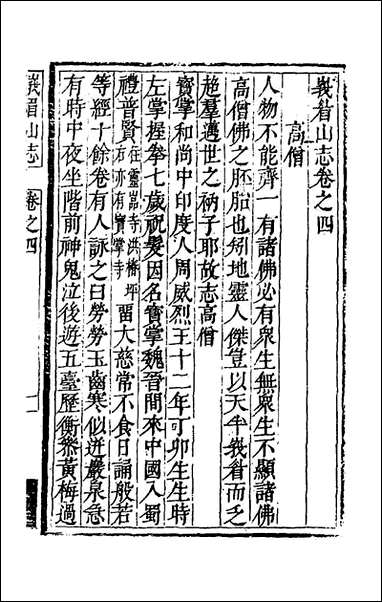 峩眉山志卷之四
高僧
人物不能齊一有諸佛必有衆生無衆生不顯諸佛
高僧佛之胚胎也矧地靈人傑豈以天半峩眉而乏
超羣邁世之衲子耶故志高僧
寳掌和尚中印度人周威烈王十二年丁卯生生時
左掌握拳七歲祝髮因名寳掌魏晉間來中國入蜀
禮普賢在靈嵓寺洪椿坪右亦有寳掌寺畱大慈常不食日誦般若
等經十餘卷有人詠之曰勞勞玉齒寒似迸巖泉急
有時中夜坐階前神鬼泣後遊五臺歷衡黃梅過
峩眉山志
卷之四
一